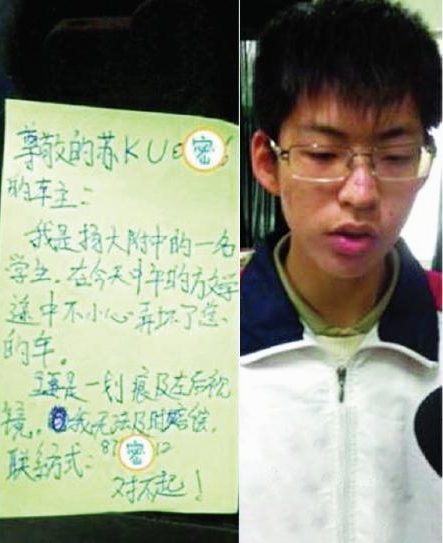 尊敬的苏KU密
的车主：
我是扬大附中的一名
学生.在今天中午的放学
途中不小心弄坏了您
的车。
主要是一划痕及左后视
镜。我无法及时赔偿.
联系方式：87密12
对不起！